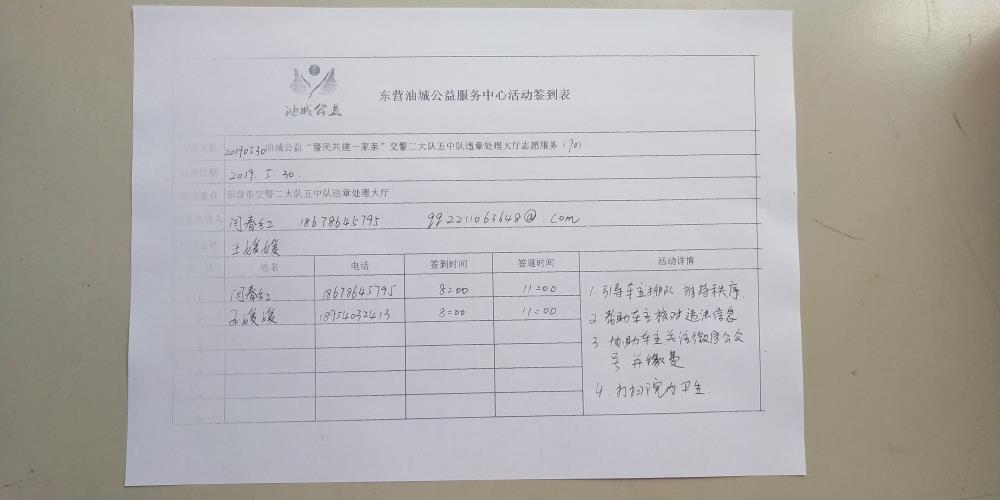 油城公益
东营油城公益服务中心活动签到表
20190530油城公益“警民共建一家亲”交警二大队五中队违章处理大厅志愿服务（70）
日期 2019.5.30.
地点 东营市交警二大队五中队违章处理大厅
人 闫春红 18678645795 qq2211063648@.com
王媛媛
姓名 电话 签到时间 签退时间 活动详情
闫春红 18678645795 8:00 11:00
王媛媛 18954032413 8:00 11:00
1. 引导车主排队、维持秩序.
2 帮助车主核对违法信息
3. 协助车主关注微信公众
号并缴费
4. 打扫院内卫生.